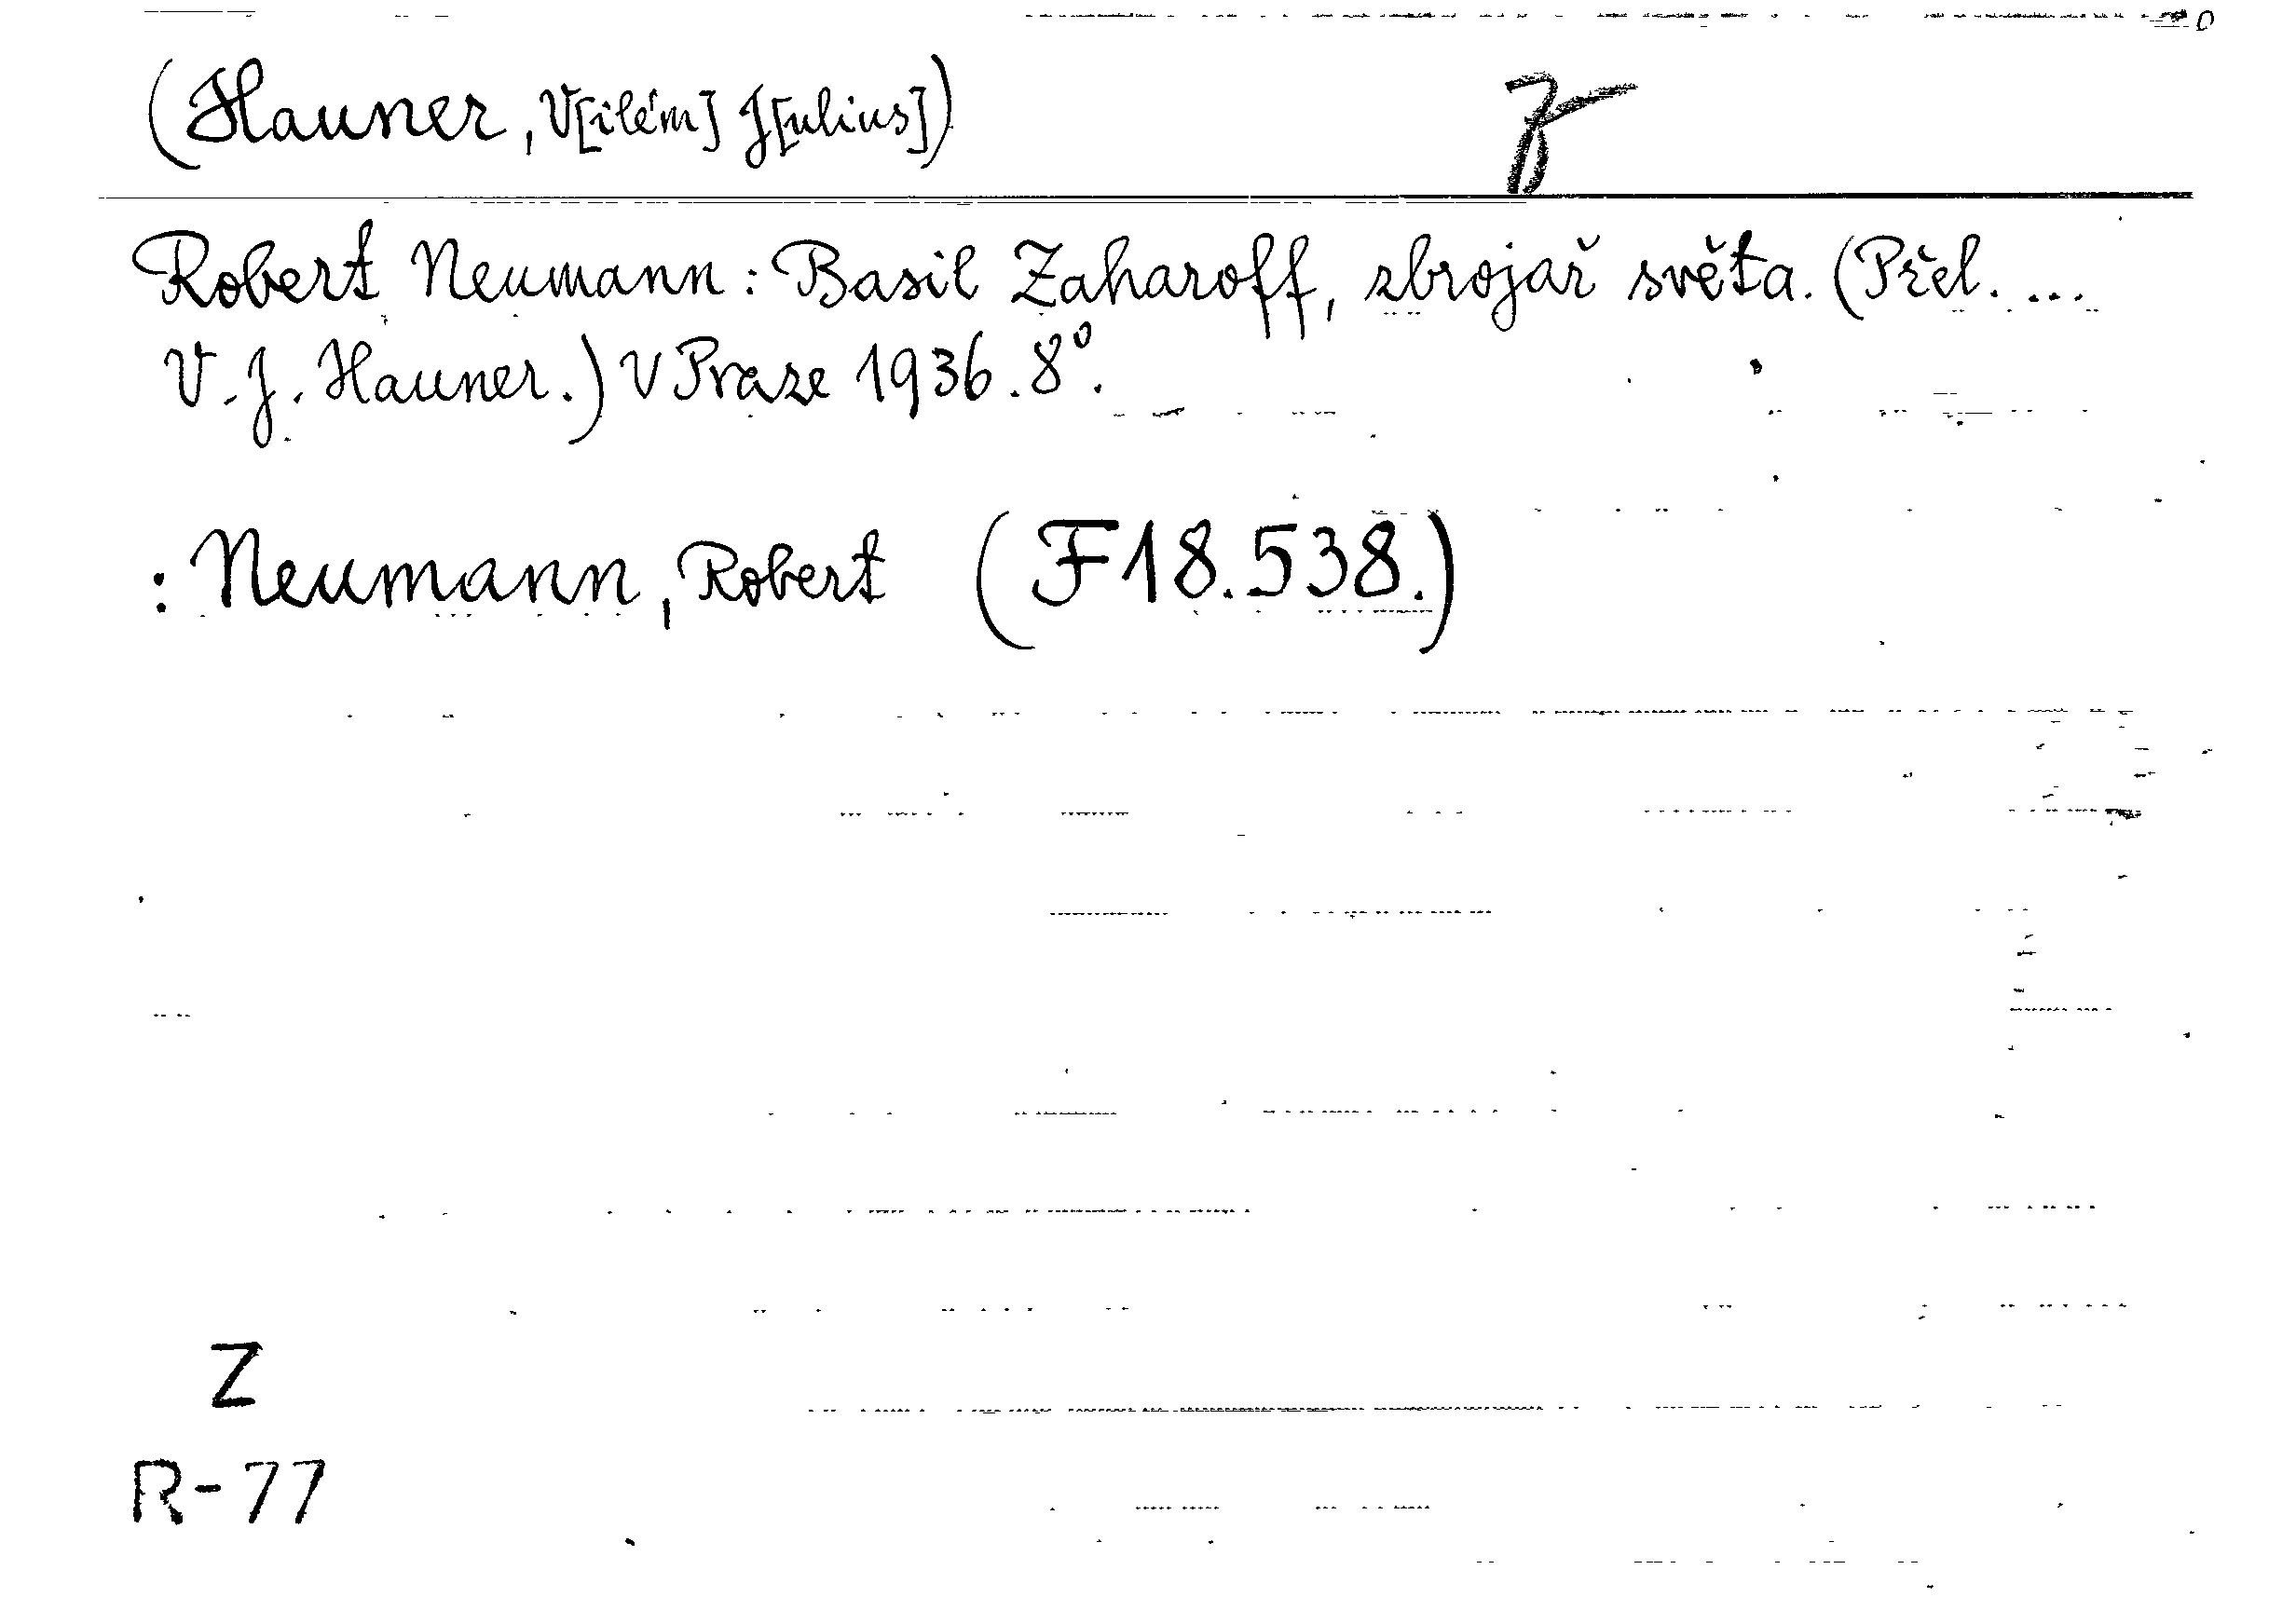 (Hauner, V[ilém] J[ulius])
Robert Neumann: Basil Zaharoff, zbrojař světa. (Přel. ...
V. J. Hauner.) V Praze 1936. 8°.
: Neumann, Robert (F18.538.)
Z
R-77